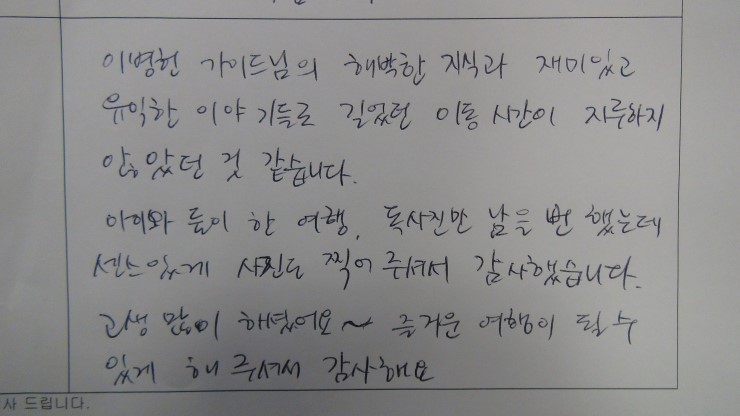 이병헌 가이드님의 해박한 지식과 재미있고
유익한 이야기들로 길었던 이동시간이 지루하지
않았던 것 같습니다.
아이와 둘이 한 여행, 독사진만 남을 번 했는데
센스있게 사진도 찍어 주셔서 감사했습니다.
고생 많이 하셨어요~ 즐거운 여행이 될 수
있게 해 주셔서 감사해요
사 드립니다.